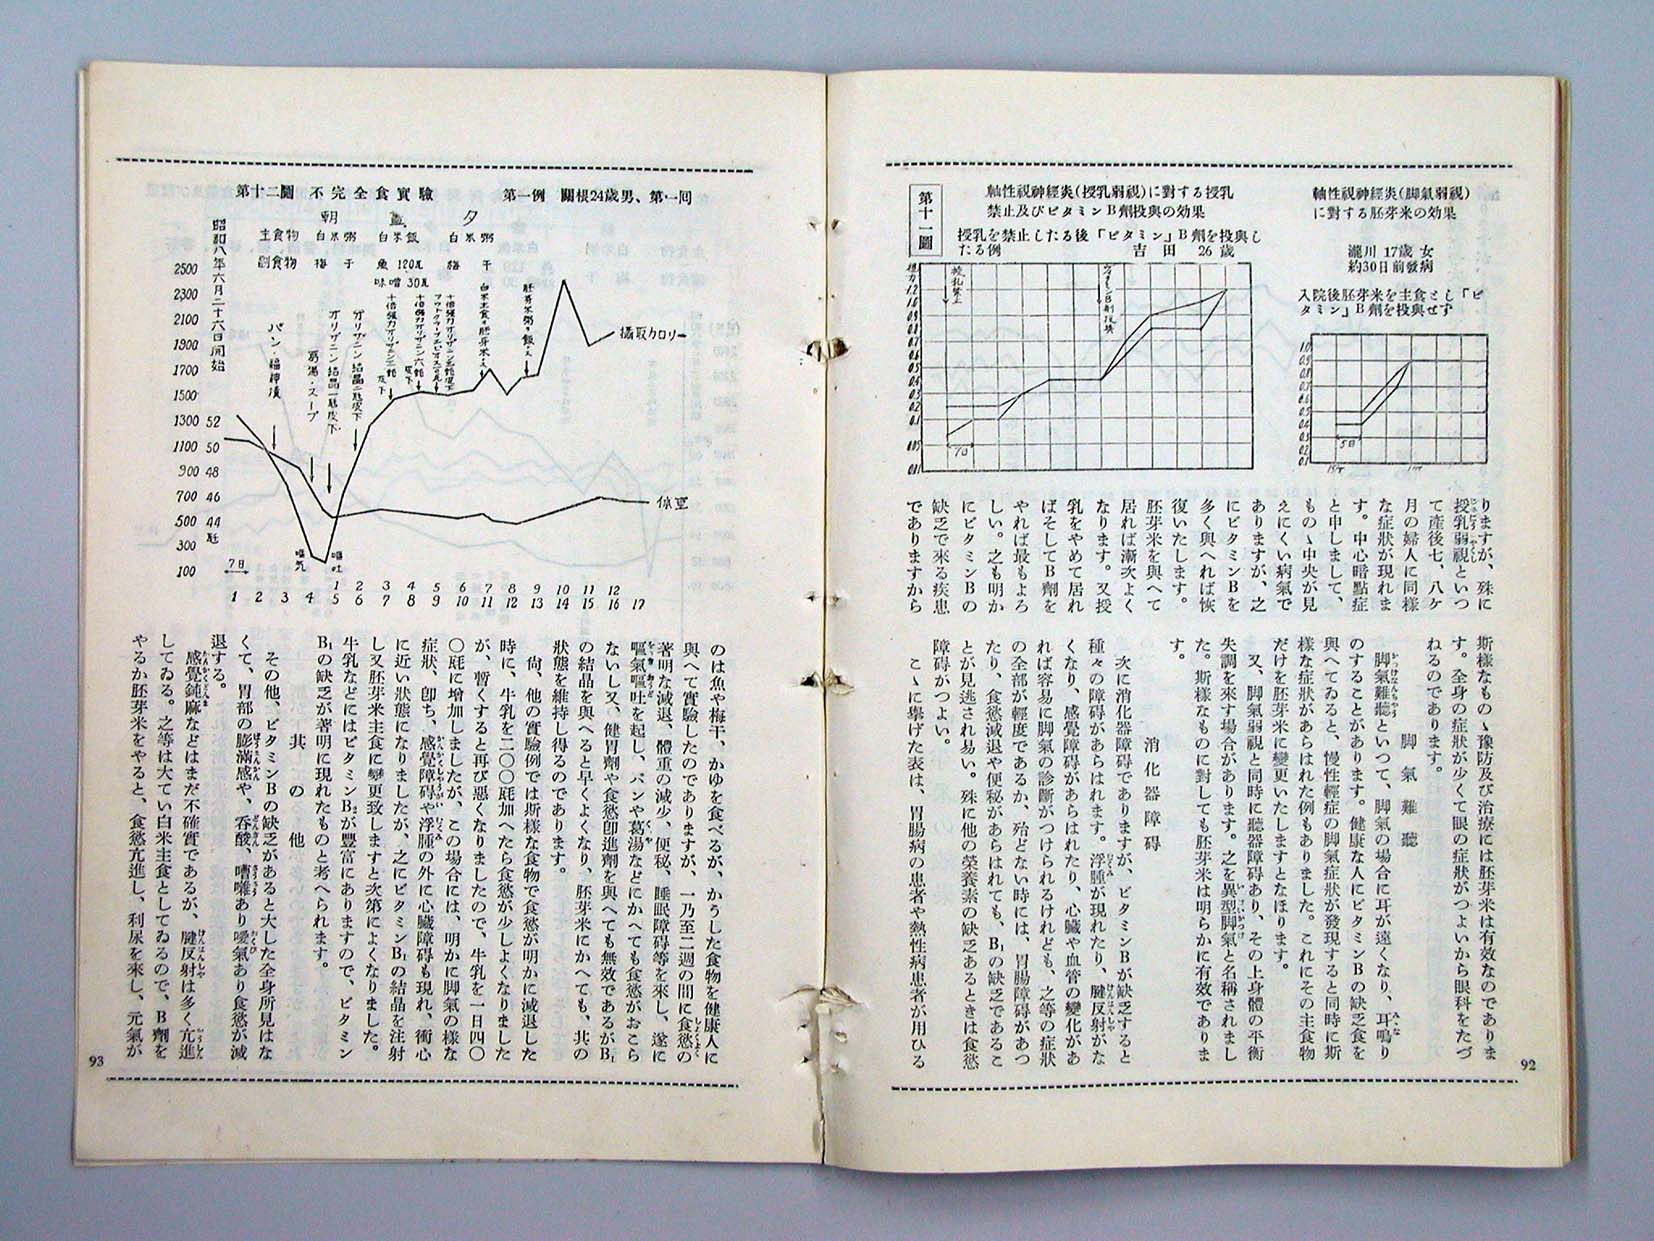 軸性視神經炎(脚氣弱視)
に對する胚芽米の効果
瀧川 17歳 女
約30日前發病
入院後胚芽米を主食とし「ビ
タミン」B劑を投與せず
5日
第十一圖
軸性視神經炎(授乳弱視)に對する授乳
禁止及びビタミンB劑投與の効果
授乳を禁止したる後「ビタミン」B劑を投與し
たる例 吉田 26歳
授乳禁止
7日
りますが、殊に
授乳弱視といつ
て產後七、八ヶ
月の婦人に同樣
な症狀が現れま
す。中心暗點症
と申しまして、
もの〻中央が見
えにくい病氣で
ありますが、之
にビタミンBを
多く與へれば恢
復いたします。
胚芽米を與へて
居れば漸次よく
なります。又授
乳をやめて居れ
ばそしてB劑を
やれば最もよろ
しい。之も明か
にビタミンBの
缺乏で來る疾患
でありますから
斯樣なもの〻豫防及び治療には胚芽米は有效なのでありま
す。全身の症狀が少くて眼の症狀がつよいから眼科をたづ
ねるのであります。
脚氣難聽
脚氣難聽といつて、脚氣の場合に耳が遠くなり、耳鳴り
のすることがあります。健康な人にビタミンBの缺乏食を
與へてゐると、慢性輕症の脚氣症狀が發現すると同時に斯
樣な症狀があらはれた例もありました。これにその主食物
だけを胚芽米に變更いたしますとなほります。
又、脚氣弱視と同時に聽器障碍あり、その上身體の平衡
失調を來す場合があります。之を異型脚氣と名稱されまし
た。斯樣なものに對しても胚芽米は明らかに有效でありま
す。
消化器障碍
次に消化器障碍でありますが、ビタミンBが缺乏すると
種々の障碍があらはれます。浮腫が現れたり、腱反射がな
くなり、感覺障碍があらはれたり、心臟や血管の變化があ
れば容易に脚氣の診斷がつけられるけれども、之等の症狀
の全部が輕度であるか、殆どない時には、胃腸障碍があつ
たり、食慾減退や便秘があらはれても、B₁の缺乏であるこ
とが見逃され易い。殊に他の榮養素の缺乏あるときは食慾
障碍がつよい。
こ〻に擧げた表は、胃腸病の患者や熱性病患者が用ひる
92
第十二圖 不完全食實驗 第一例 關根24歳男、第一回
朝 晝 夕
主食物 白米粥 白米飯 白米粥
副食物 梅干 魚120瓦 梅干
味噌30瓦
昭和八年六月二十六日開始
2500
2300
2100
1900
1700
1500
1300 52
1100 50
900 48
700 46
500 44瓩
300
100
パン・福神漬
葛湯・スープ
オリザニン結晶一瓱皮下
オリザニン結晶二瓱皮下
攝取カロリー
体重
嘔氣
嘔吐
7日
1 2 3 4 5 6 7 8 9 10 11 12
1 2 3 4 5 6 7 8 9 10 11 12 13 14 15 16 17
のは魚や梅干、かゆを食べるが、かうした食物を健康人に
與へて實驗したのでありますが、一乃至二週の間に食慾の
著明な減退、體重の減少、便秘、睡眠障碍等を來し、遂に
嘔氣嘔吐を起し、パンや葛湯などにかへても食慾がおこら
ないし又、健胃劑や食慾卽進劑を與へても無效であるがB₁
の結晶を與へると早くよくなり、胚芽米にかへても、其の
狀態を維持し得るのであります。
尙、他の實驗例では斯樣な食物で食慾が明かに減退した
時に、牛乳を二〇〇瓱加へたら食慾が少しよくなりました
が、暫くすると再び悪くなりましたので、牛乳を一日四〇
〇瓱に增加しましたが、この場合には、明かに脚氣の樣な
症狀、卽ち、感覺障碍や浮腫の外に心臟障碍も現れ、衝心
に近い狀態になりましたが、之にビタミンB₁の結晶を注射
し又胚芽米主食に變更致しますと次第によくなりました。
牛乳などにはビタミンB₂が豐富にありますので、ビタミン
B₁の缺乏が著明に現れたものと考へられます。
其の他
その他、ビタミンBの缺乏があると大した全身所見はな
くて、胃部の膨滿感や、呑酸、嘈囃あり噯氣あり食慾が減
退する。
感覺鈍麻などはまだ不確實であるが、腱反射は多く亢進
してゐる。之等は大てい白米主食としてゐるので、B劑を
やるか胚芽米をやると、食慾亢進し、利尿を來し、元氣が
93